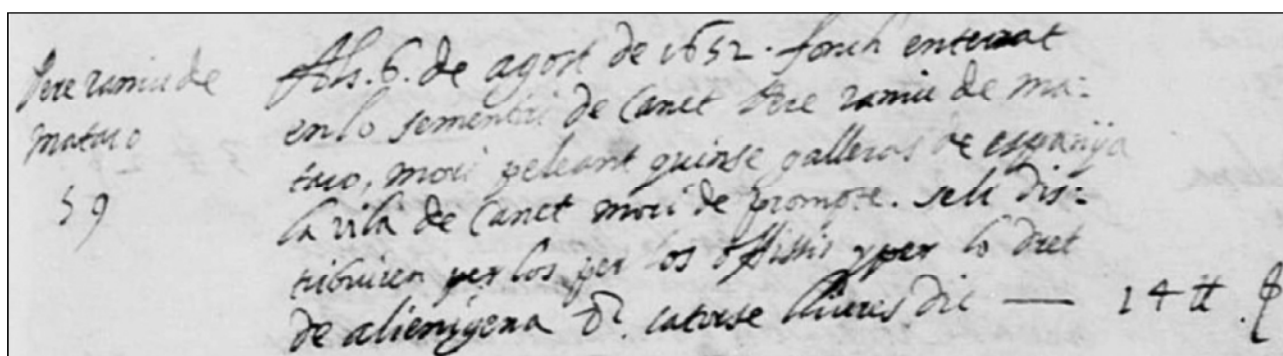 Pere ramiu de
mataro
59
Als. 6. de agost de 1652. fonch enterrat
en lo sementiri de Canet Pere ramiu de ma:
taro, mori peleant quinse galleras de espanya
la vila de Canet mori de prompte. seli dis:
tribuiren per los per los offissis y per lo dret
de alienigena catorse lliures dic — 14 ℔